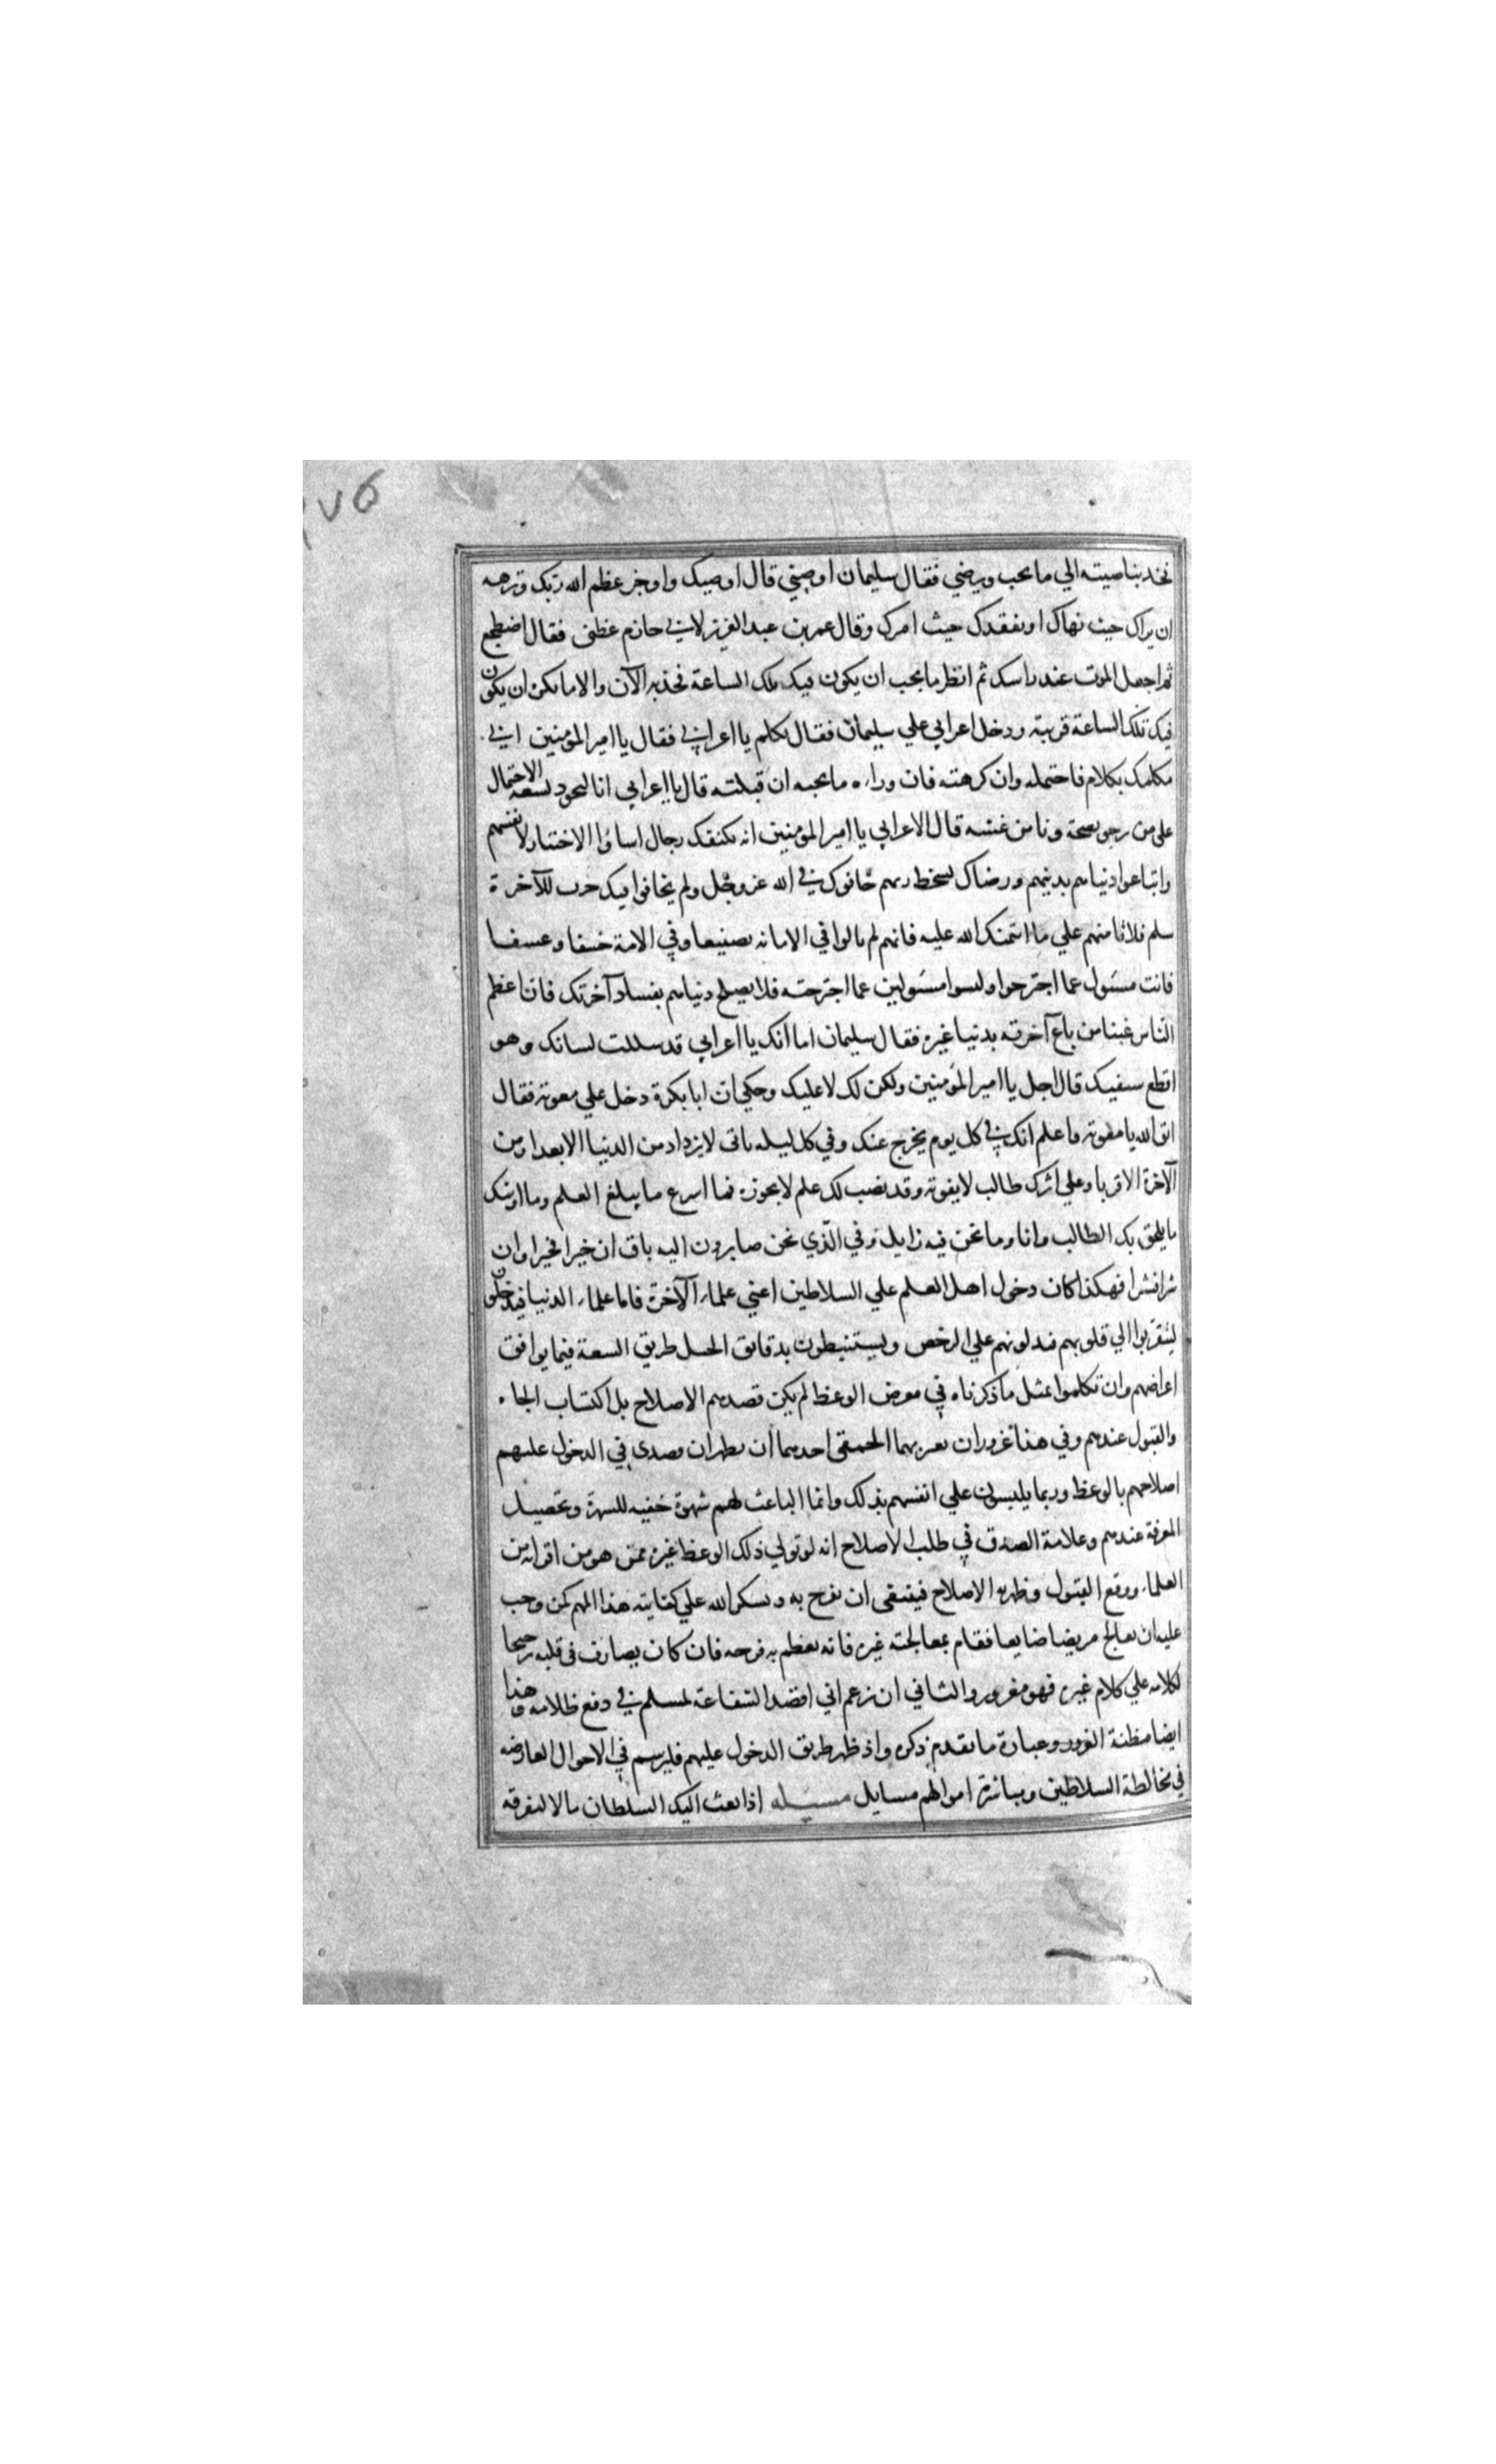 ١٧٥
فخذ بناصيته الي ما يحب ويرضي فقال سليمان اوصني قال اوصيك واوجز عظم الله ربك ونزهه
ان يراك حيث نهاك او يفقدك حيث امرك وقال عمر بن عبد العزيز لابي حازم عظني فقال اضطجع
ثم اجعل الموت عند راسك ثم انظر ما يحب ان يكون فيك تلك الساعة فخذ به الآن والا ما يكره ان يكون
فيك تلك الساعة قريبة ودخل اعرابي علي سليمان فقال تكلم يا اعرابي فقال يا امير المؤمنين اني
مكلمك بكلام فاحتمله وان كرهته فان وراءه ما يحبه ان قبلته قال يا اعرابي انا لنجود بسعة الاحتمال
علي من نرجو نصحه ونامن غشه قال الاعرابي يا امير المؤمنين انه تكنفك رجال اساؤا الاختيار لانفسهم
وابتاعوا دنياهم بدينهم ورضاك بسخط ربهم خافوك في الله عز وجل ولم يخافوا فيك حرب للآخرة
سلم فلا تامنهم علي ما ائتمنك الله عليه فانهم لم يالوا في الامانه تضييعا وفي الامة خسفا وعسفا
فانت مسئول عما اجترحوا وليسوا مسئولين عما اجترحته فلا يصلح دنياهم بفساد آخرتك فان اعظم
الناس غبنا من باع آخرته بدنيا غيره فقال سليمان اما انك يا اعرابي قد سللت لسانك وهو
اقطع سيفيك قال اجل يا امير المؤمنين ولكن لك لا عليك وحكي ان ابا بكرة دخل علي معوية فقال
اتق الله يا معوية واعلم انك في كل يوم يخرج عنك وفي كل ليله تاتي لا يزداد من الدنيا الا بعدا ومن
الآخرة الا قربا وعلي اثرك طالب لا يفوته وقد نصب لك علم لا يجوزه فما اسرع ما يبلغ العلم وما اوشك
ما يلحق بك الطالب وانا وما نحن فيه زايل وفي الذي نحن صايرون اليه باق ان خيرا فخيرا وان
شرا فشرا فهكذا كان دخول اهل العلم علي السلاطين اعني علماء الآخرة فاما علماء الدنيا فيدخلون
ليتقربوا الي قلوبهم فيدلونهم علي الرخص ويستنبطون بدقايق الحيل طريق السعة فيما يوافق
اغراضهم وان تكلموا بمثل ما ذكرناه في معرض الوعظ لم يكن قصدهم الاصلاح بل اكتساب الجاه
والقبول عندهم وفي هذا غروران يغتر بهما الحمقى احدهما ان يظهر ان قصدي في الدخول عليهم
اصلاحهم بالوعظ وربما يلبسون علي انفسهم بذلك وانما الباعث لهم شهوة خفيه للشهرة وتحصيل
المعرفة عندهم وعلامة الصدق في طلب الاصلاح انه لو تولي ذلك الوعظ غيره ممن هو من اقرانه من
العلماء ووقع القبول وظهر به الاصلاح فينبغي ان يفرح به ويشكر الله علي كفايته هذا المهم كمن وجب
عليه ان يعالج مريضا ضايعا فقام بمعالجته غيره فانه يعظم به فرحه فان كان يصادف في قلبه ترجيحا
لكلامه علي كلام غيره فهو مغرور والثاني ان زعم اني اقصد الشفاعة لمسلم في دفع ظلامه وهذا
ايضا مظنة الغرور وعبارة ما تقدم ذكره واذ ظهر طريق الدخول عليهم فليرسم في الاحوال العارضه
في مخالطة السلاطين ومباشرة اموالهم مسايل مسيله اذا بعث اليك السلطان مالا لتفرقه